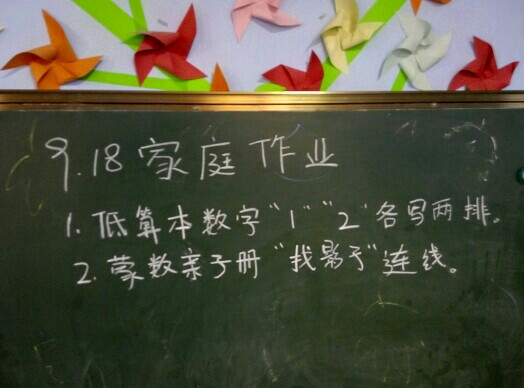 9.18家庭作业
1.低算本数字“1”“2”各写两排。
2.蒙数亲子册“找影子”连线。